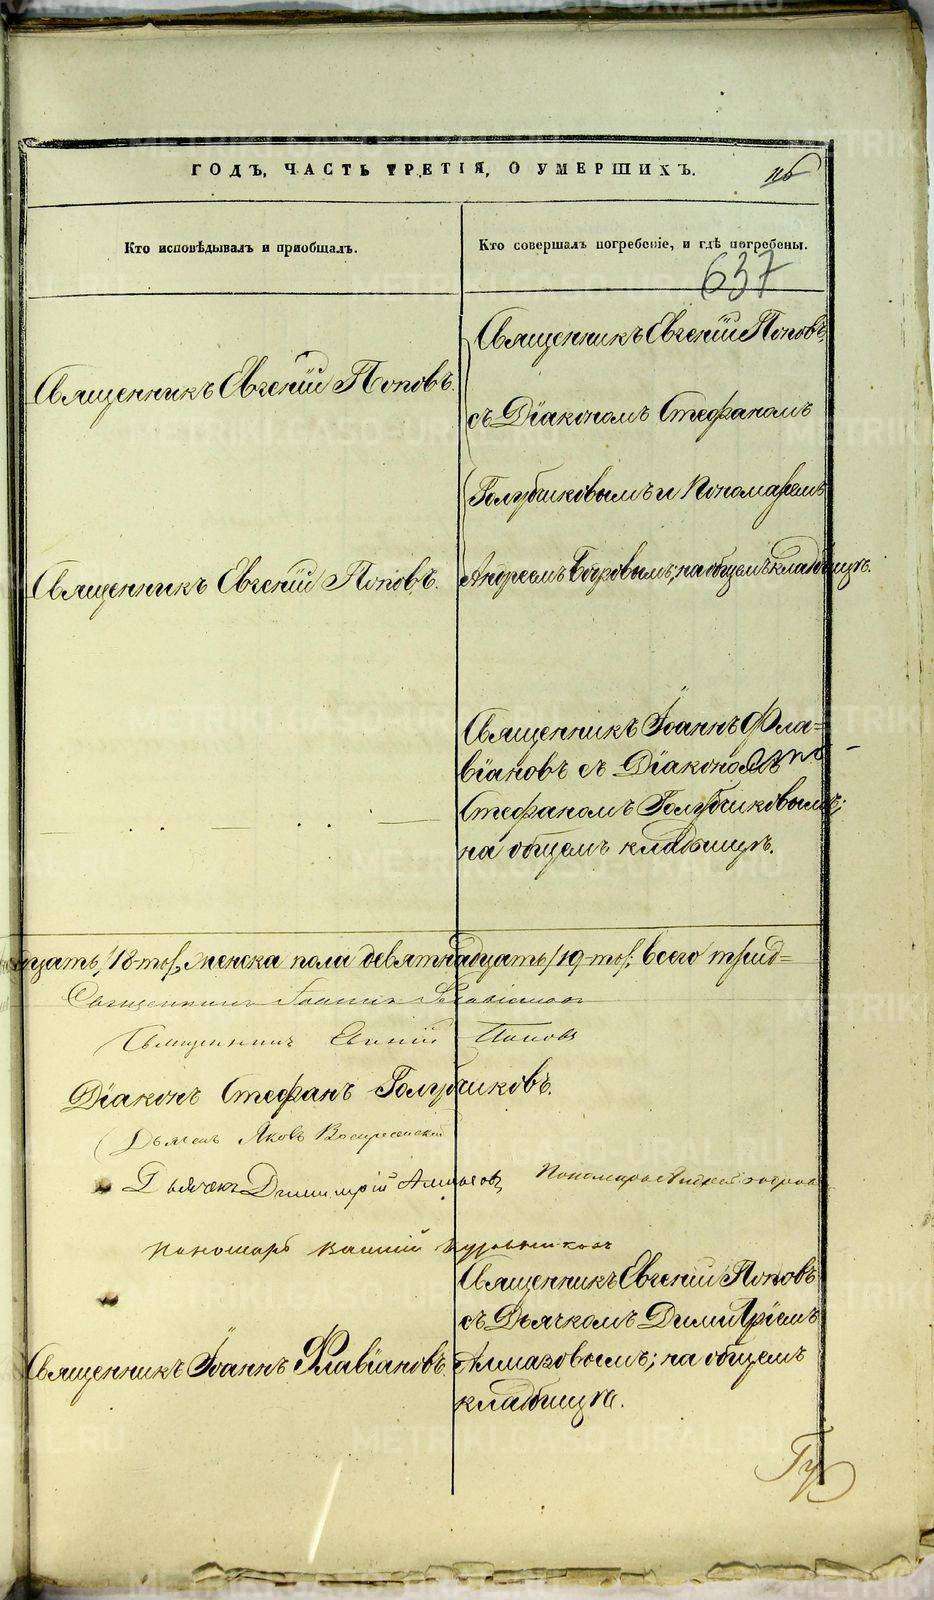 ГОДЪ, ЧАСТЬ ТРЕТІЯ, О УМЕРШИХЪ.
Кто исповѣдывалъ и пріобщалъ.
Кто совершалъ погребеніе, и гдѣ погребены.
637
Священникъ Евгеній Поповъ.
Священникъ Евгеній Поповъ,
съ Діакономъ Стефаномъ
Голубчиковымъ и Пономаремъ
Священникъ Евгеній Поповъ.
Андреемъ Бобровымъ; на общемъ кладбищѣ.
Священникъ Іоаннъ Фла=
віановъ съ Діакономъ
Стефаномъ Голубчиковымъ;
на общемъ кладбищѣ.
цать /18-ть/, женска пола девятнадцать /19-ть/; всего трид=
Священникъ Іоаннъ Флавіановъ
Священникъ Евгеній Поповъ
Діаконъ Стефанъ Голубчиковъ.
Дьячекъ Яковъ Воскресенскій
Дьячекъ Димитрій Алмазовъ
Пономарь Андрей Бобровъ
Пономарь
Священникъ Евгеній Поповъ
съ Дьячкомъ Димитріемъ
Священникъ Іоаннъ Флавіановъ.
Алмазовымъ; на общемъ
кладбищѣ.
METRIKI.GASO-URAL.RU